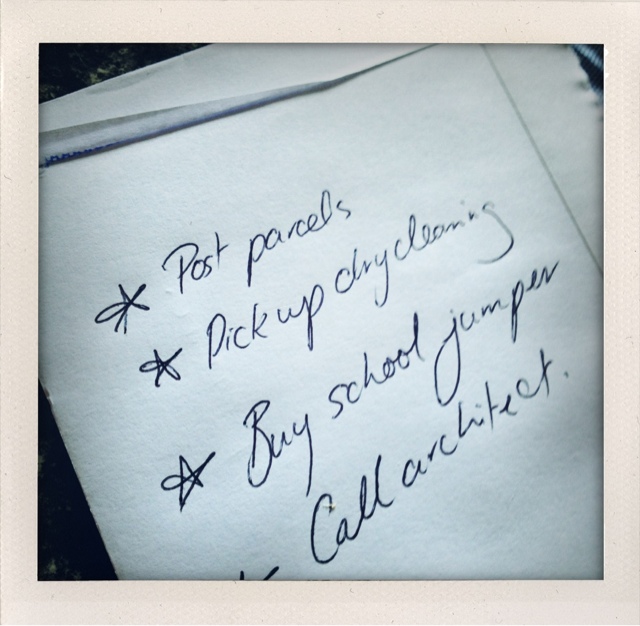 * Post parcels
* Pick up drycleaning
* Buy school jumper
* Call architect.